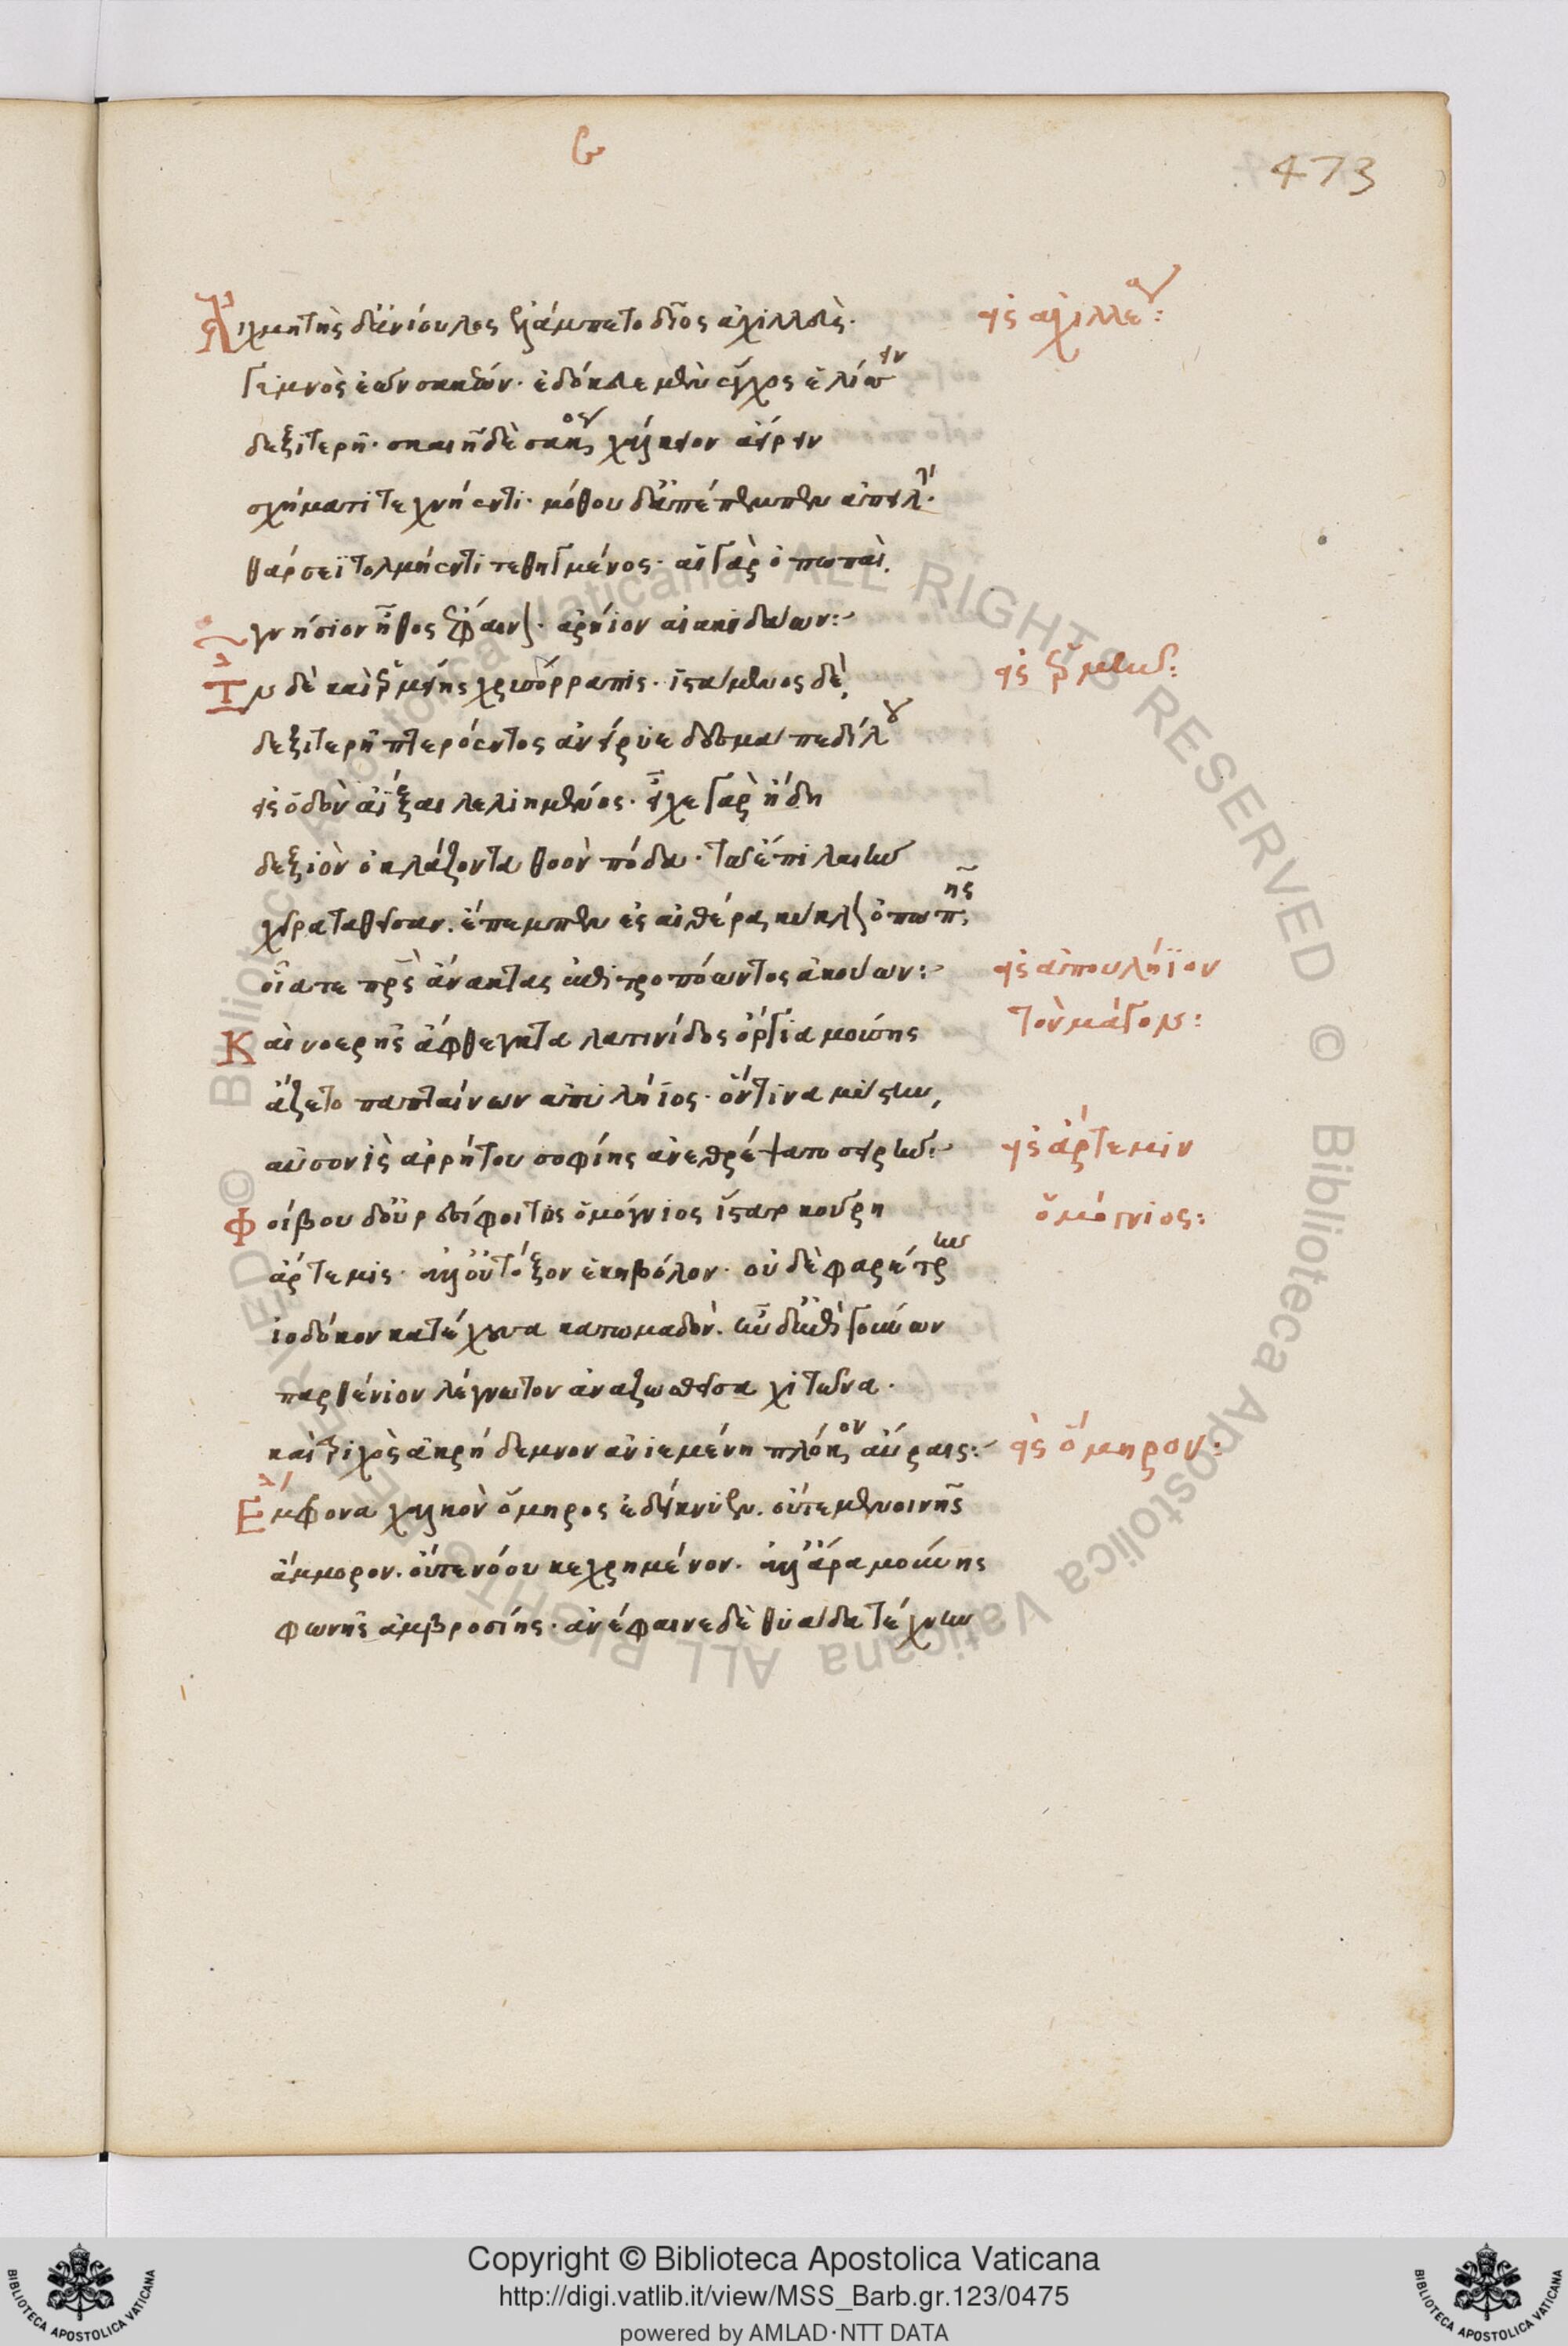 β
473
Αἰχμητὴς δ' ἀνίουλος ἐλάμπετο δῖος ἀχιλλεὺς·
γυμνὸς ἐὼν σακέων· ἐδόκευε μὲν ἔγχος ἑλίσσειν
δεξιτερῇ· σκαιῇ δὲ σάκος χάλκειον ἀείρειν
σχήματι τεχνήεντι· μόθου δ' ἀπέπεμπεν ἀπειλήν·
θάρσεϊ τολμήεντι τεθηγμένος· αἱ γὰρ ὀπωπαὶ
γνήσιον ἦθος ἔφαινον· ἀρήϊον αἰακιδάων:
εἰς ἀχιλλέα:
Ἦν δὲ καὶ ἑρμείης χρυσόρραπις· ἱστάμενος δὲ
δεξιτερῇ πτερόεντος ἀνείρυε δεσμὰ πεδίλου
εἰς ὁδὸν ἀΐξαι λελιημένος· εἶχε γὰρ ἤδη
δεξιὸν ὀκλάζοντα θοὸν πόδα· τῷ δ' ἔπι λαιὴν
χεῖρα ταθεῖσαν· ἔπεμπεν ἐς αἰθέρα κύκλον ὀπωπῆς
οἷά τε πατρὸς ἄνακτος ἐπιτροπόωντος ἀκούων:
εἰς ἑρμῆν:
Καὶ νοερῆς ἄφθεγκτα λατινίδος ὄργια μούσης
ἅζετο παπταίνων ἀπυλήϊος· ὅντινα μύστην
αὐσονὶς ἀρρήτου σοφίης ἀνεθρέψατο σειρήν:
εἰς ἀπουλήϊον
τὸν μάγον:
Φοίβου δ' οὐρεσίφοιτος ὁμόγνιος ἵστατο κούρη
ἄρτεμις· ἀλλ' οὐ τόξον ἑκηβόλον· οὐδὲ φαρέτρην
ἰοδόκον κατέχουσα κατωμαδόν· ἦν δ' ἐπὶ γούνων
παρθένιον λεγνωτὸν ἀναζωσθεῖσα χιτῶνα·
καὶ τριχὸς ἀκρήδεμνον ἀνιεμένη πλόκον αὔραις:
εἰς ἄρτεμιν
ὁμόγνιος:
Ἔμφρονα χαλκὸν ὅμηρος ἐδείκνυεν· οὔτε μενοινῆς
ἄμμορον· οὔτε νόου κεχρημένον· ἀλλ' ἄρα μούνης
φωνῆς ἀμβροσίης· ἀνέφαινε δὲ θυιάδα τέχνην
εἰς ὅμηρον:
Copyright © Biblioteca Apostolica Vaticana
http://digi.vatlib.it/view/MSS_Barb.gr.123/0475
powered by AMLAD·NTT DATA
BIBLIOTECA APOSTOLICA VATICANA
BIBLIOTECA APOSTOLICA VATICANA
© Biblioteca Apostolica Vaticana ALL RIGHTS RESERVED © Biblioteca Apostolica Vaticana ALL RIGHTS RESERVED